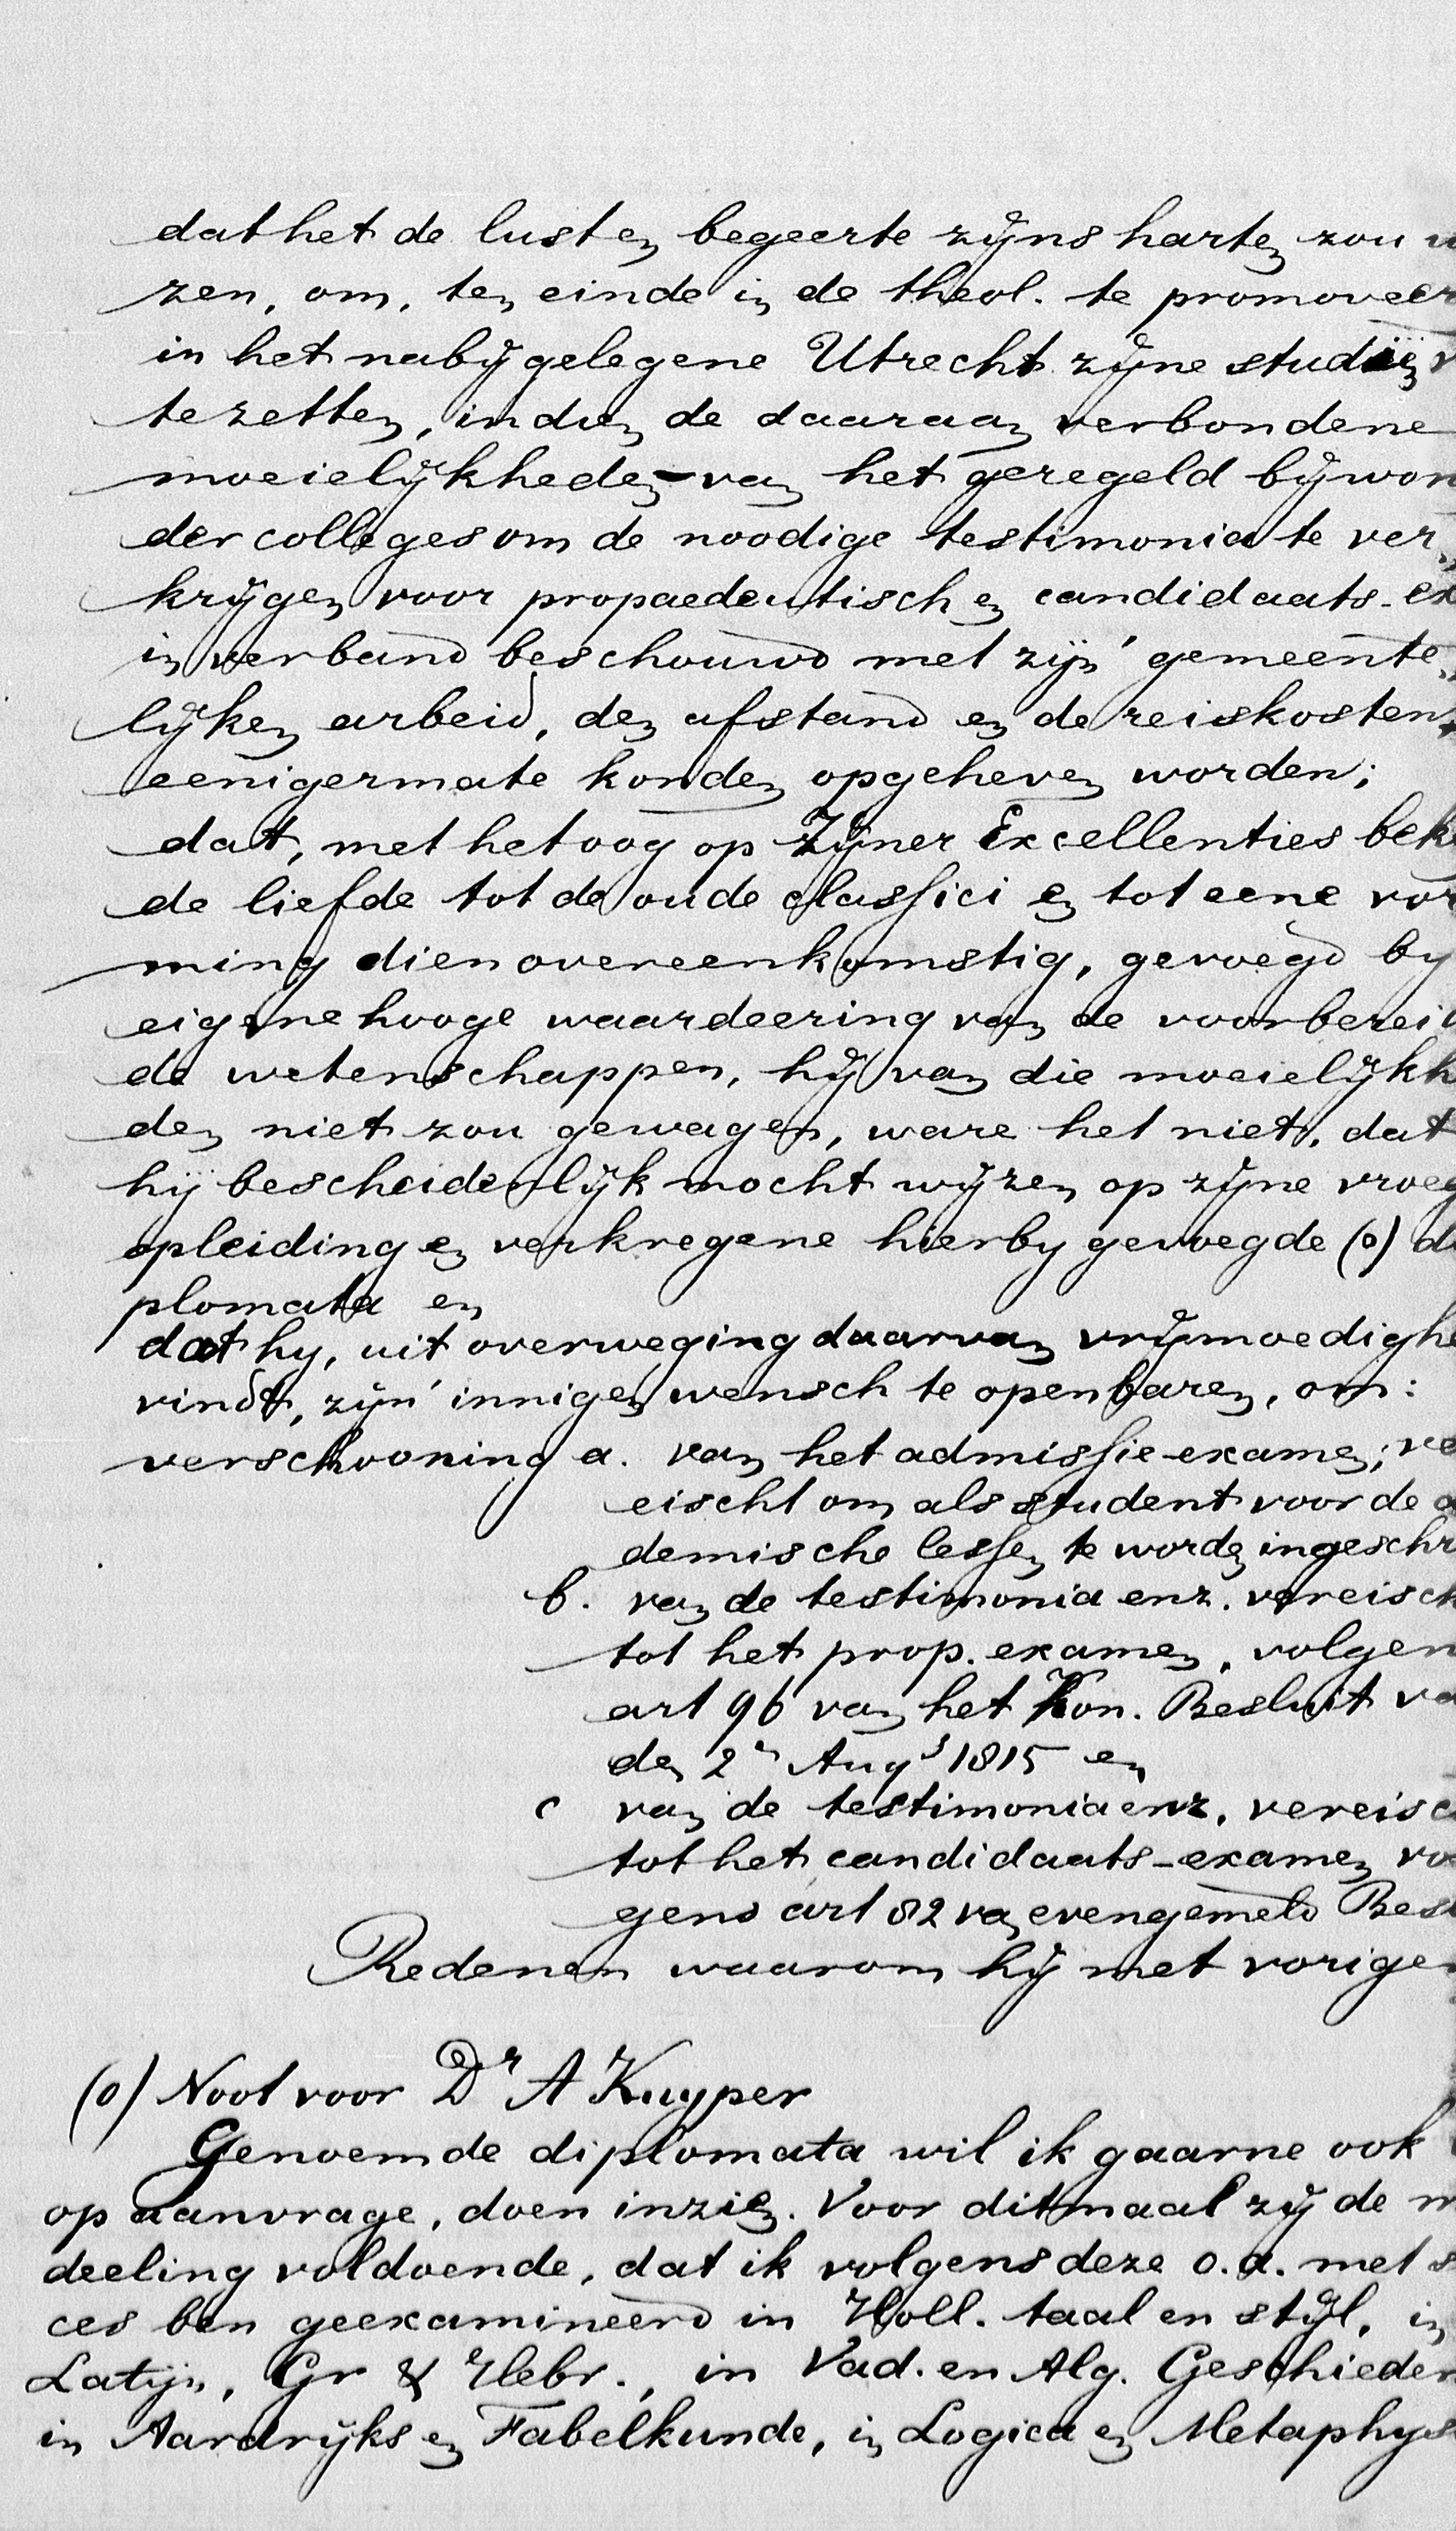 dat het de lust en begeerte zijns harten zou
zen, om, ten einde in de theol. te promoveer
in het nabij gelegene Utrecht zijne studiën
te zetten, indien de daaraan verbondene
moeielijkheden van het geregeld bijwon
der colleges om de noodige testimonia te ver„
krijgen voor propaedeutisch en candidaats-ex
in verband beschouwd met zijn' gemeente„
lijken arbeid, den afstand en de reiskosten,
eenigermate konden opgeheven worden;
dat, met het oog op Zijner Excellenties beke
de liefde tot de oude classici en tot eene vor
ming dienovereenkomstig, gevoegd by
eigene hooge waardeering van de voorberei
de wetenschappen, hij van die moeielijkh
den niet zou gewagen, ware het niet, dat
hij bescheidenlijk mocht wijzen op zijne vroeg
opleiding en verkregene hierby gevoegde (o) di
plomata en
dat hy, uit overweging daarvan vrijmoedighe
vindt, zijn' innigen wensch te openbaren, om:
verschooning a. van het admissie-examen; ve
eischt om als student voor de a
demische lessen te worden ingeschr
b. van de testimonia enz. vereisch
tot het prop. examen, volgen
art 96 van het Kon. Besluit va
den 2n Augs 1815 en
c van de testimonia enz. vereisc
tot het candidaats-examen vo
gens art 82 van evengemeld Besl
Redenen waarom hij met vorigen
(o) Noot voor Dr A Kuyper
Genoemde diplomata wil ik gaarne ook
op aanvrage, doen inzien. Voor ditmaal zij de m
deeling voldoende, dat ik volgens deze o.a. met s
ces ben geexamineerd in Holl. taal en stijl, in
Latijn, Gr & Hebr., in Vad. en Alg. Geschieden
in Aardrijks en Fabelkunde, in Logica en Metaphys